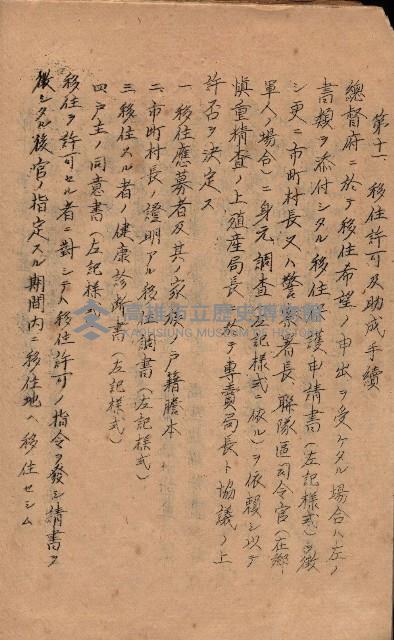 第十一、移住許可及助成手續
總督府ニ於テ移住希望ノ申出ヲ受ケタル場合ハ左ノ
書類ヲ添付シタル移住保護申請書(左記樣式)ヲ徴
シ更ニ市町村長又ハ警察署長聯隊區司令官(在鄕
軍人ノ場合)ニ身元調査(左記樣式ニ依ル)ヲ依賴シ以テ
愼重精査ノ上殖産局長ニ於テ專賣局長ト協議ノ上
許否ヲ決定ス
一、移住應募者及其ノ家族ノ戸籍謄本
二、市町村長ノ證明アル移住者調書(左記樣式)
三、移住スル者ノ健康診断書(左記樣式)
四、戸主ノ同意書(左記樣式)
移住ヲ許可セル者ニ對シテハ移住許可ノ指令ヲ發シ請書ヲ
徴シタル後官ノ指定スル期間内ニ移住地ヘ移住セシム
高雄市立歷史博物館
KAOHSIUNG MUSEUM OF HISTORY